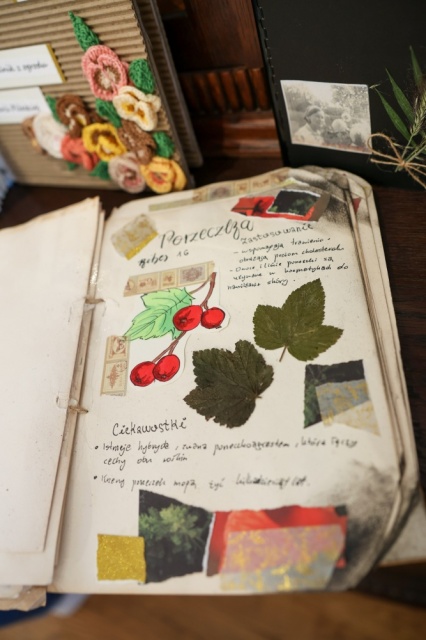 Porzeczka
Zastosowanie
- wspomagają trawienie
obniżają poziom cholesterolu
- Owoce i liście porzeczki są
używane w kosmetykach do
nawilżania skóry.
Ciekawostki
• Istnieje hybryda, zwana porzeczkoagrestem, która łączy
cechy obu roślin
• Krzewy porzeczek mogą żyć kilkadziesiąt lat.